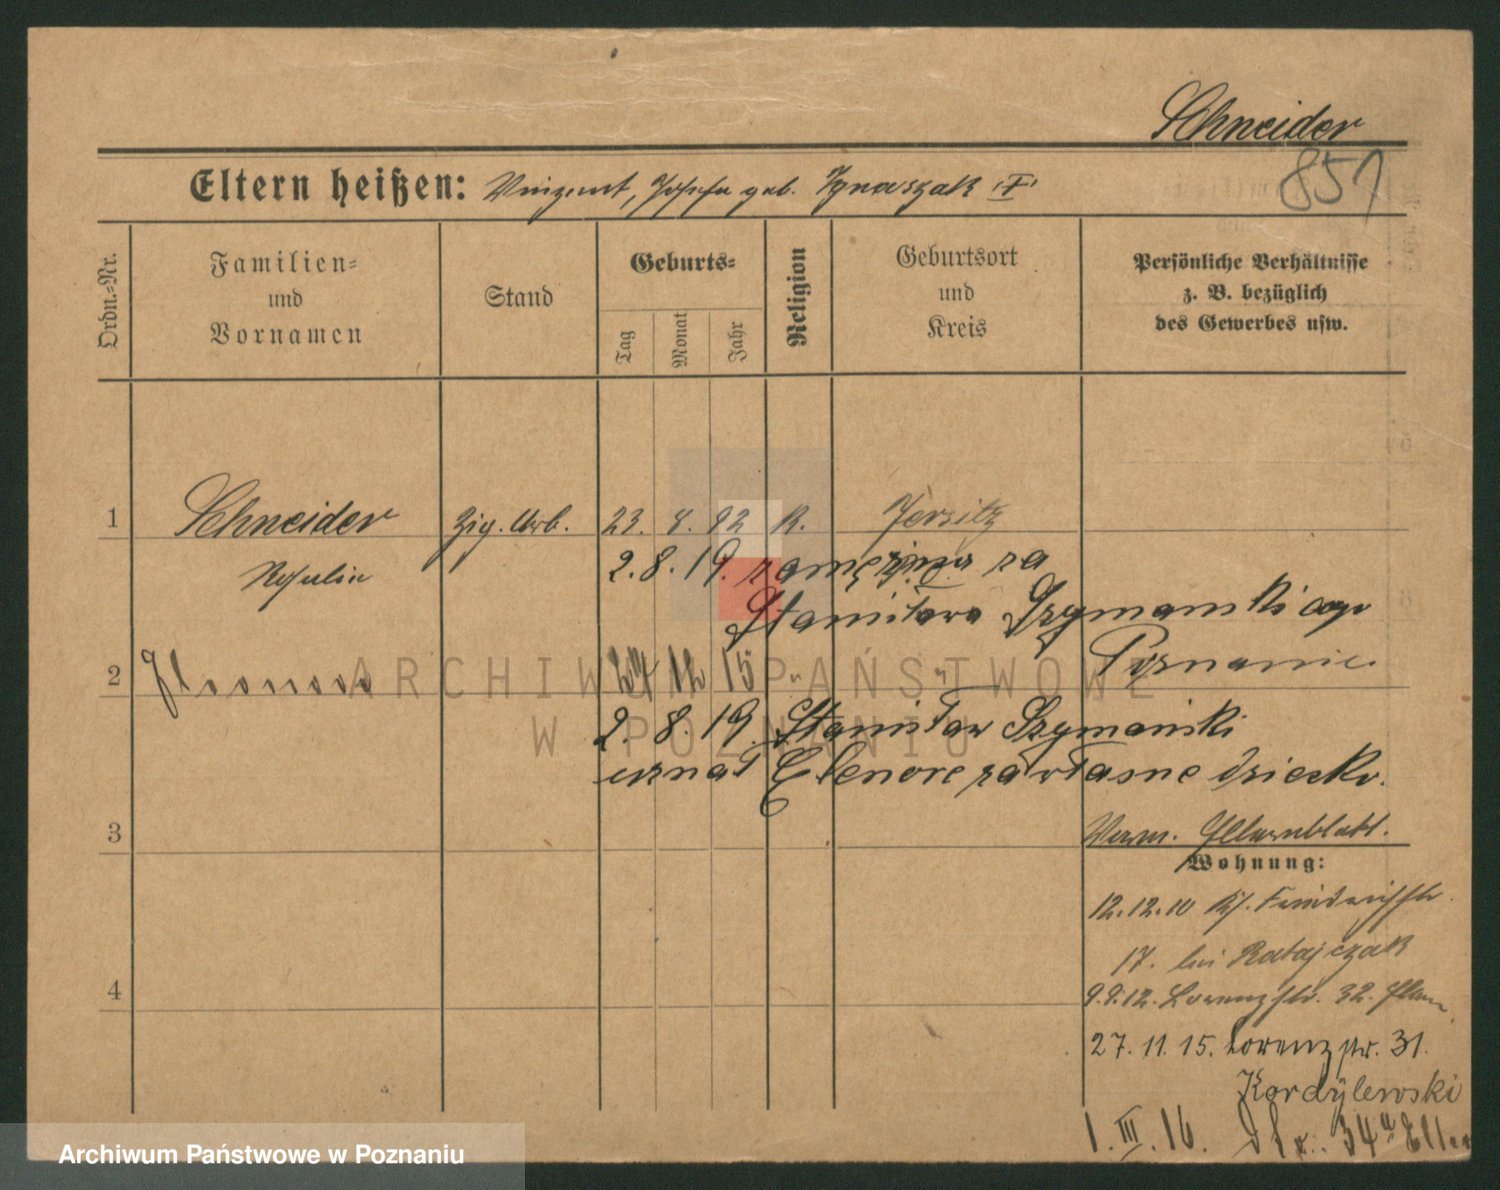 Schneider
851
Eltern heißen: Vinzent, Josefa geb. Ignaszak
Ordn.-Nr.
Familien-
und
Vornamen
Stand
Geburts-
Tag
Monat
Jahr
Religion
Geburtsort
und
Kreis
Persönliche Verhältnisse
z. B. bezüglich
des Gewerbes usw.
1 Schneider Zig. Arb. 23. 8. 92 K. Jersitz
2.8.19. zamężna za
Stanisława Szymańskiego
Poznanie.
2 24 12 15 " "
2. 8. 19. Stanisław Szymański
uznał Elenore za własne dziecko.
3
Verm. Elternblatt.
Wohnung:
12.12.10
17. bei Ratajczak
9.9.12. Lorenzstr. 32.
27. 11. 15. Lorenzstr. 31.
Kordylewski
4
1. III. 16. 34a
ARCHIWUM PAŃSTWOWE
W POZNANIU
Archiwum Państwowe w Poznaniu